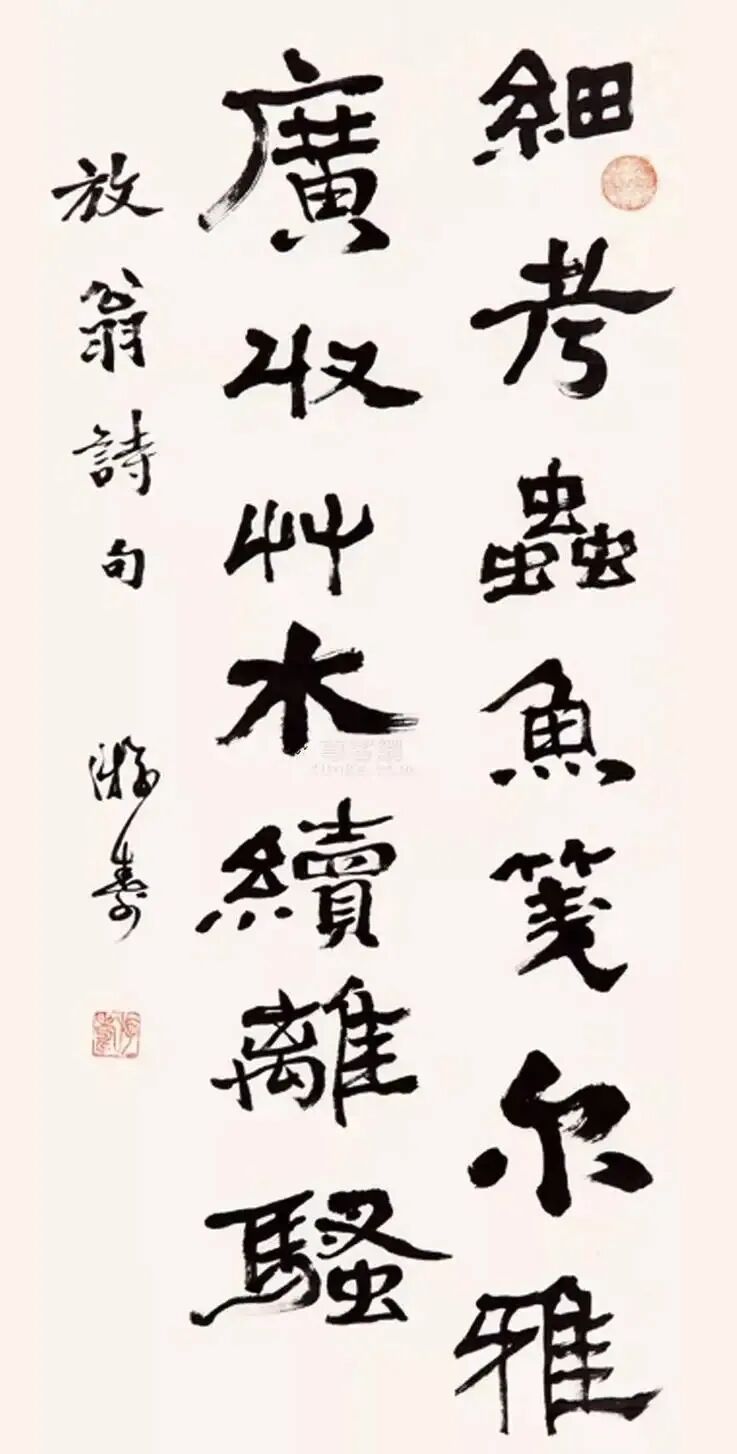 細考蟲魚箋尔雅
廣収艸木續離騷
放翁詩句